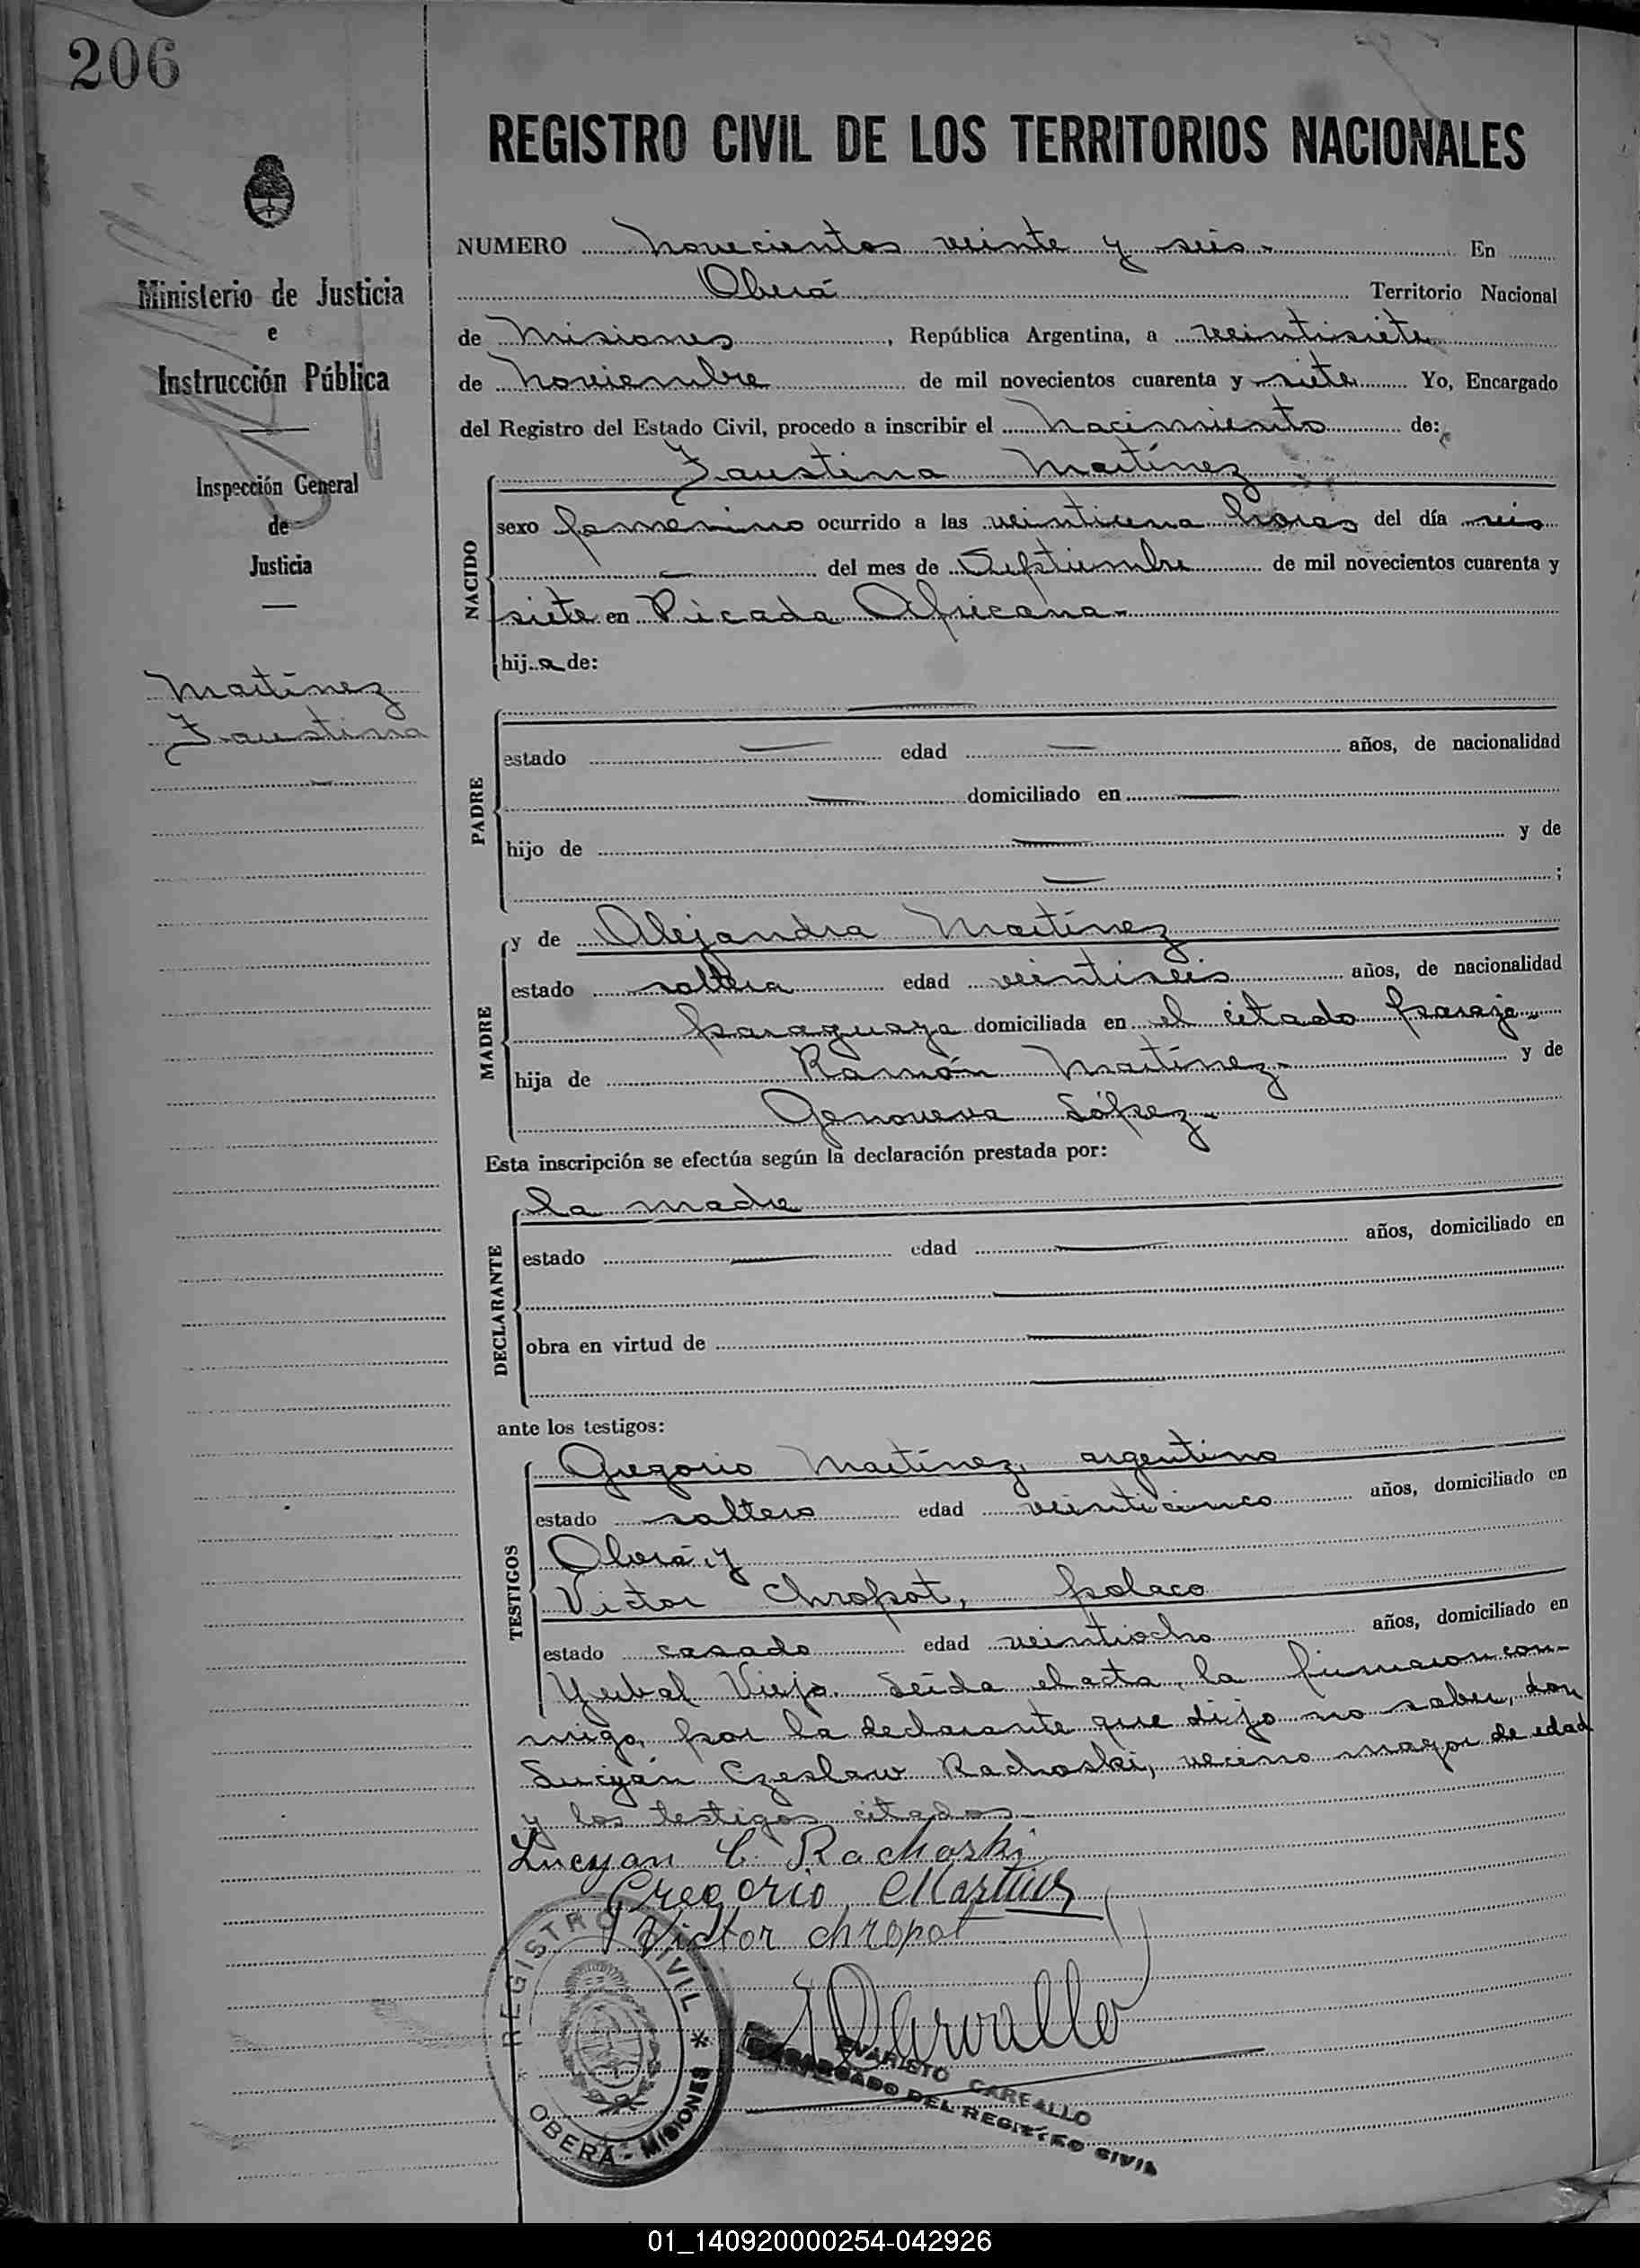 206
REGISTRO CIVIL DE LOS TERRITORIOS NACIONALES
Ministerio de Justicia
e
Instrucción Pública
Inspección General
de
Justicia
Martínez
Faustina
NUMERO novecientos veinte y seis.- En
Oberá Territorio Nacional
de Misiones, República Argentina, a veintisiete
de Noviembre de mil novecientos cuarenta y siete Yo, Encargado
del Registro del Estado Civil, procedo a inscribir el nacimiento de:
Faustina Martínez
NACIDO
sexo femenino ocurrido a las veintiuna horas del día seis
del mes de Septiembre de mil novecientos cuarenta y
siete en Picada Africana.-
hija de:
PADRE
estado — edad — años, de nacionalidad
— domiciliado en —
hijo de — y de
— ;
MADRE
y de Alejandra Martínez
estado soltera edad veintiseis años, de nacionalidad
paraguaya domiciliada en el citado paraje.-
hija de Ramón Martínez.- y de
Genoveva López.-
Esta inscripción se efectúa según la declaración prestada por:
DECLARANTE
la madre
estado — edad — años, domiciliado en
—
obra en virtud de —
—
ante los testigos:
TESTIGOS
Gregorio Martínez, argentino
estado soltero edad veinticinco años, domiciliado en
Oberá, y
Victor Chropot, polaco
estado casado edad veintiocho años, domiciliado en
Yerbal Viejo. Leída el acta, la firmaron con-
migo, por la declarante que dijo no saber, don
Lucyán Czeslaw Rachoski, vecino mayor de edad
y los testigos citados.-
Lucyan C. Rachoski
Gregorio Martinez
Victor chropot
REGISTRO CIVIL * OBERÁ - MISIONES *
EVARISTO CARBALLO
ENCARGADO DEL REGISTRO CIVIL
01_140920000254-042926